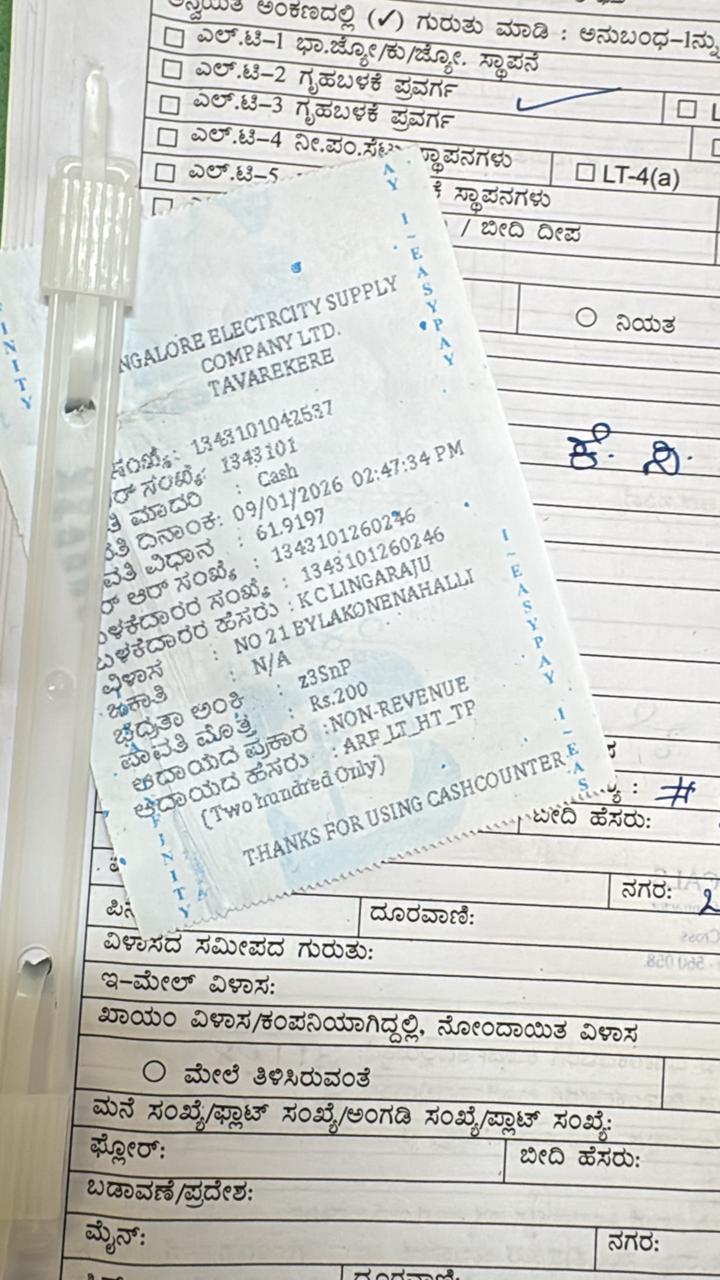 ಅನ್ವಯಿತ ಅಂಕಣದಲ್ಲಿ (✓) ಗುರುತು ಮಾಡಿ : ಅನುಬಂಧ-1ನ್ನು
ಎಲ್.ಟಿ-1 ಭಾ.ಜ್ಯೋ/ಕು/ಜ್ಯೋ. ಸ್ಥಾಪನೆ
ಎಲ್.ಟಿ-2 ಗೃಹಬಳಕೆ ಪ್ರವರ್ಗ
ಎಲ್.ಟಿ-3 ಗೃಹಬಳಕೆ ಪ್ರವರ್ಗ
ಎಲ್.ಟಿ-4 ನೀ.ಪಂ.ಸೆಟ್ಟು ಸ್ಥಾಪನಗಳು
LT-4(a)
ಎಲ್.ಟಿ-5 ಕೆ ಸ್ಥಾಪನಗಳು
/ ಬೀದಿ ದೀಪ
ನಿಯತ
ಕೆ. ಸಿ.
NGALORE ELECTRCITY SUPPLY
COMPANY LTD.
TAVAREKERE
ಸಂಖ್ಯೆ: 1343101042537
ರ್ ಸಂಖ್ಯೆ: 1343101
ತಿ ಮಾದರಿ : Cash
ವತಿ ದಿನಾಂಕ: 09/01/2026 02:47:34 PM
ವತಿ ವಿಧಾನ : 61.9197
ರ್ ಆರ್ ಸಂಖ್ಯೆ : 1343101260246
ಬಳಕೆದಾರರ ಸಂಖ್ಯೆ : 1343101260246
ಬಳಕೆದಾರರ ಹೆಸರು : K C LINGARAJU
ವಿಳಾಸ : NO 21 BYLAKONENAHALLI
ಜಕಾತಿ : N/A
ಭದ್ರತಾ ಅಂಕಿ : z3SnP
ಪಾವತಿ ಮೊತ್ತ : Rs.200
ಆದಾಯದ ಪ್ರಕಾರ :NON-REVENUE
ಆದಾಯದ ಹೆಸರು : ARF_LT_HT_TP
(Two hundred Only)
THANKS FOR USING CASHCOUNTER
I-EASYPAY
I-EASYPAY
FINITY
INITY
#
ಬೀದಿ ಹೆಸರು:
ನಗರ:
ದೂರವಾಣಿ:
ವಿಳಾಸದ ಸಮೀಪದ ಗುರುತು:
ಇ-ಮೇಲ್ ವಿಳಾಸ:
ಖಾಯಂ ವಿಳಾಸ/ಕಂಪನಿಯಾಗಿದ್ದಲ್ಲಿ, ನೋಂದಾಯಿತ ವಿಳಾಸ
ಮೇಲೆ ತಿಳಿಸಿರುವಂತೆ
ಮನೆ ಸಂಖ್ಯೆ/ಫ್ಲಾಟ್ ಸಂಖ್ಯೆ/ಅಂಗಡಿ ಸಂಖ್ಯೆ/ಪ್ಲಾಟ್ ಸಂಖ್ಯೆ:
ಫ್ಲೋರ್: ಬೀದಿ ಹೆಸರು:
ಬಡಾವಣೆ/ಪ್ರದೇಶ:
ಮೈನ್: ನಗರ: